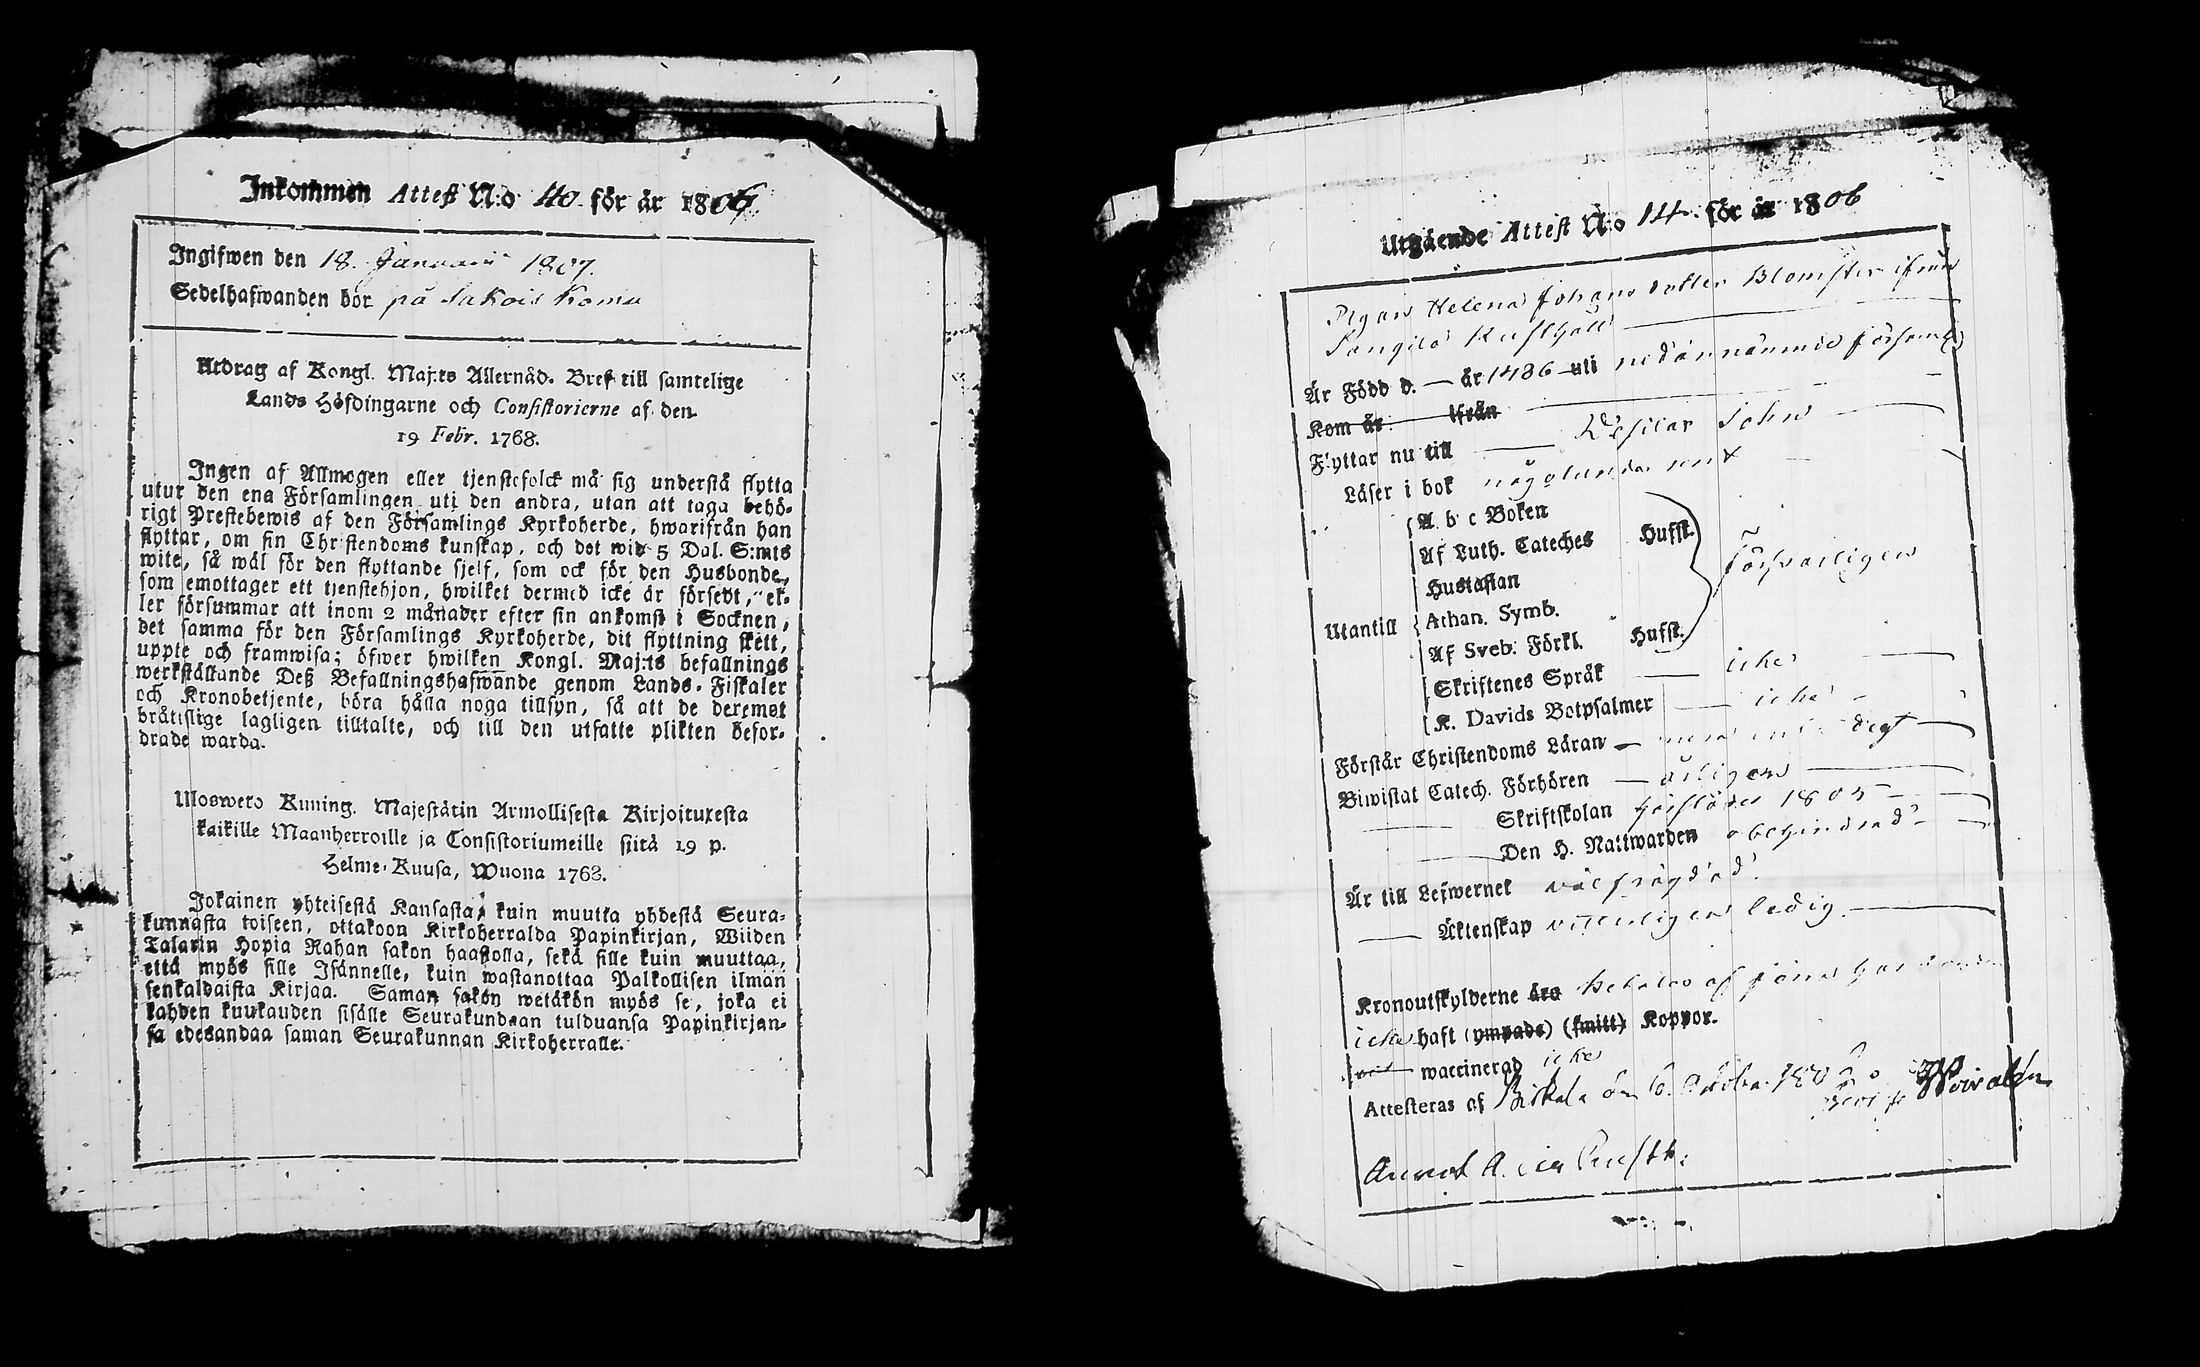 Inkommen Attest N:o 40. för år 1806.
Ingifwen den 18. Januarii 1807.
Sedelhafwanden bor på Sakois Komu
Utdrag af Kongl. Maj:ts Allernåd. Bref till samtelige
Lands Höfdingarne och Consistorierne af den
19 Febr. 1768.
Ingen af Allmogen eller tjenstefolck må sig understå flytta
utur den ena Församlingen uti den andra, utan att taga behö-
rigt Prestebewis af den Församlings Kyrkoherde, hwarifrån han
flyttar, om sin Christendoms kunskap, och det wid 5 Dal. S:mts
wite, så wäl för den flyttande sjelf, som ock för den Husbonde,
som emottager ett tjenstehjon, hwilket dermed icke är försedt, el-
ler försummar att inom 2 månader efter sin ankomst i Socknen,
det samma för den Församlings Kyrkoherde, dit flyttning skett,
uppte och framwisa; öfwer hwilken Kongl. Maj:ts befallnings
werkställande Deß Befallningshafwande genom Lands-Fiskaler
och Kronobetjente, böra hålla noga tillsyn, så att de deremot
bråttslige lagligen tilltalte, och till den utsatte plikten befor-
drade warda.
Uloswero Kuning. Majestätin Armollisesta Kirjoituxesta
kaikille Maanherroille ja Consistoriumeille siitä 19 p.
Helme-Kuusa, Wuona 1768.
Jokainen yhteisestä Kansasta, kuin muutta yhdestä Seura-
kunnasta toiseen, ottakoon Kirkoherralda Papinkirjan, Wiiden
Talarin Hopia Rahan sakon haastolla, sekä sille kuin muuttaa,
että myös sille Isännelle, kuin wastanottaa Palkollisen ilman
senkaldaista Kirjaa. Saman sakon wetäkön myös se, joka ei
kahden kuukauden sisälle Seurakundaan tulduansa Papinkirjan-
sa edesandaa saman Seurakunnan Kirkoherralle.
Utgående Attest N:o 14. för år 1806
Pigan Helena Johans dotter Blomster ifrån
Rusthåll
Är Född d. — år 1786 uti nedannämnde församl.
Kom år ifrån
Flyttar nu till Wesilax Sohn
Läser i bok någolunda rent
Utantill
A b c Boken
Af Luth. Cateches Hufst.
Hustaflan
Athan. Symb.
Af Sveb. Förkl. Hufst.
Försvarligen
Skriftenes Språk icke
K. Davids Botpsalmer icke
Förstår Christendoms Läran
Biwistat Catech. Förhören årligen
Skriftskolan 1805
Den H. Nattwarden obehindrad
Är till Lefwernet wälfrägdad.
Äktenskap witterligen ledig
Kronoutskylderne äro betalas af
icke haft (ympade) (smitt) Koppor.
waccinerad icke
Attesteras af Birkala den 6. October 180